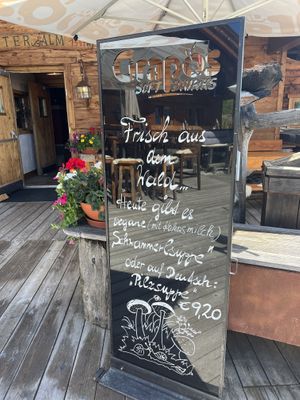 TERALM
Grapos
SOFT DRINKS
Frisch aus
dem
Wald...
Heute gibt es
vegane (mit Kokosmilch)
"Schwammerlsuppe"
oder auf Deutsch:
"Pilzsuppe"
€ 9,20